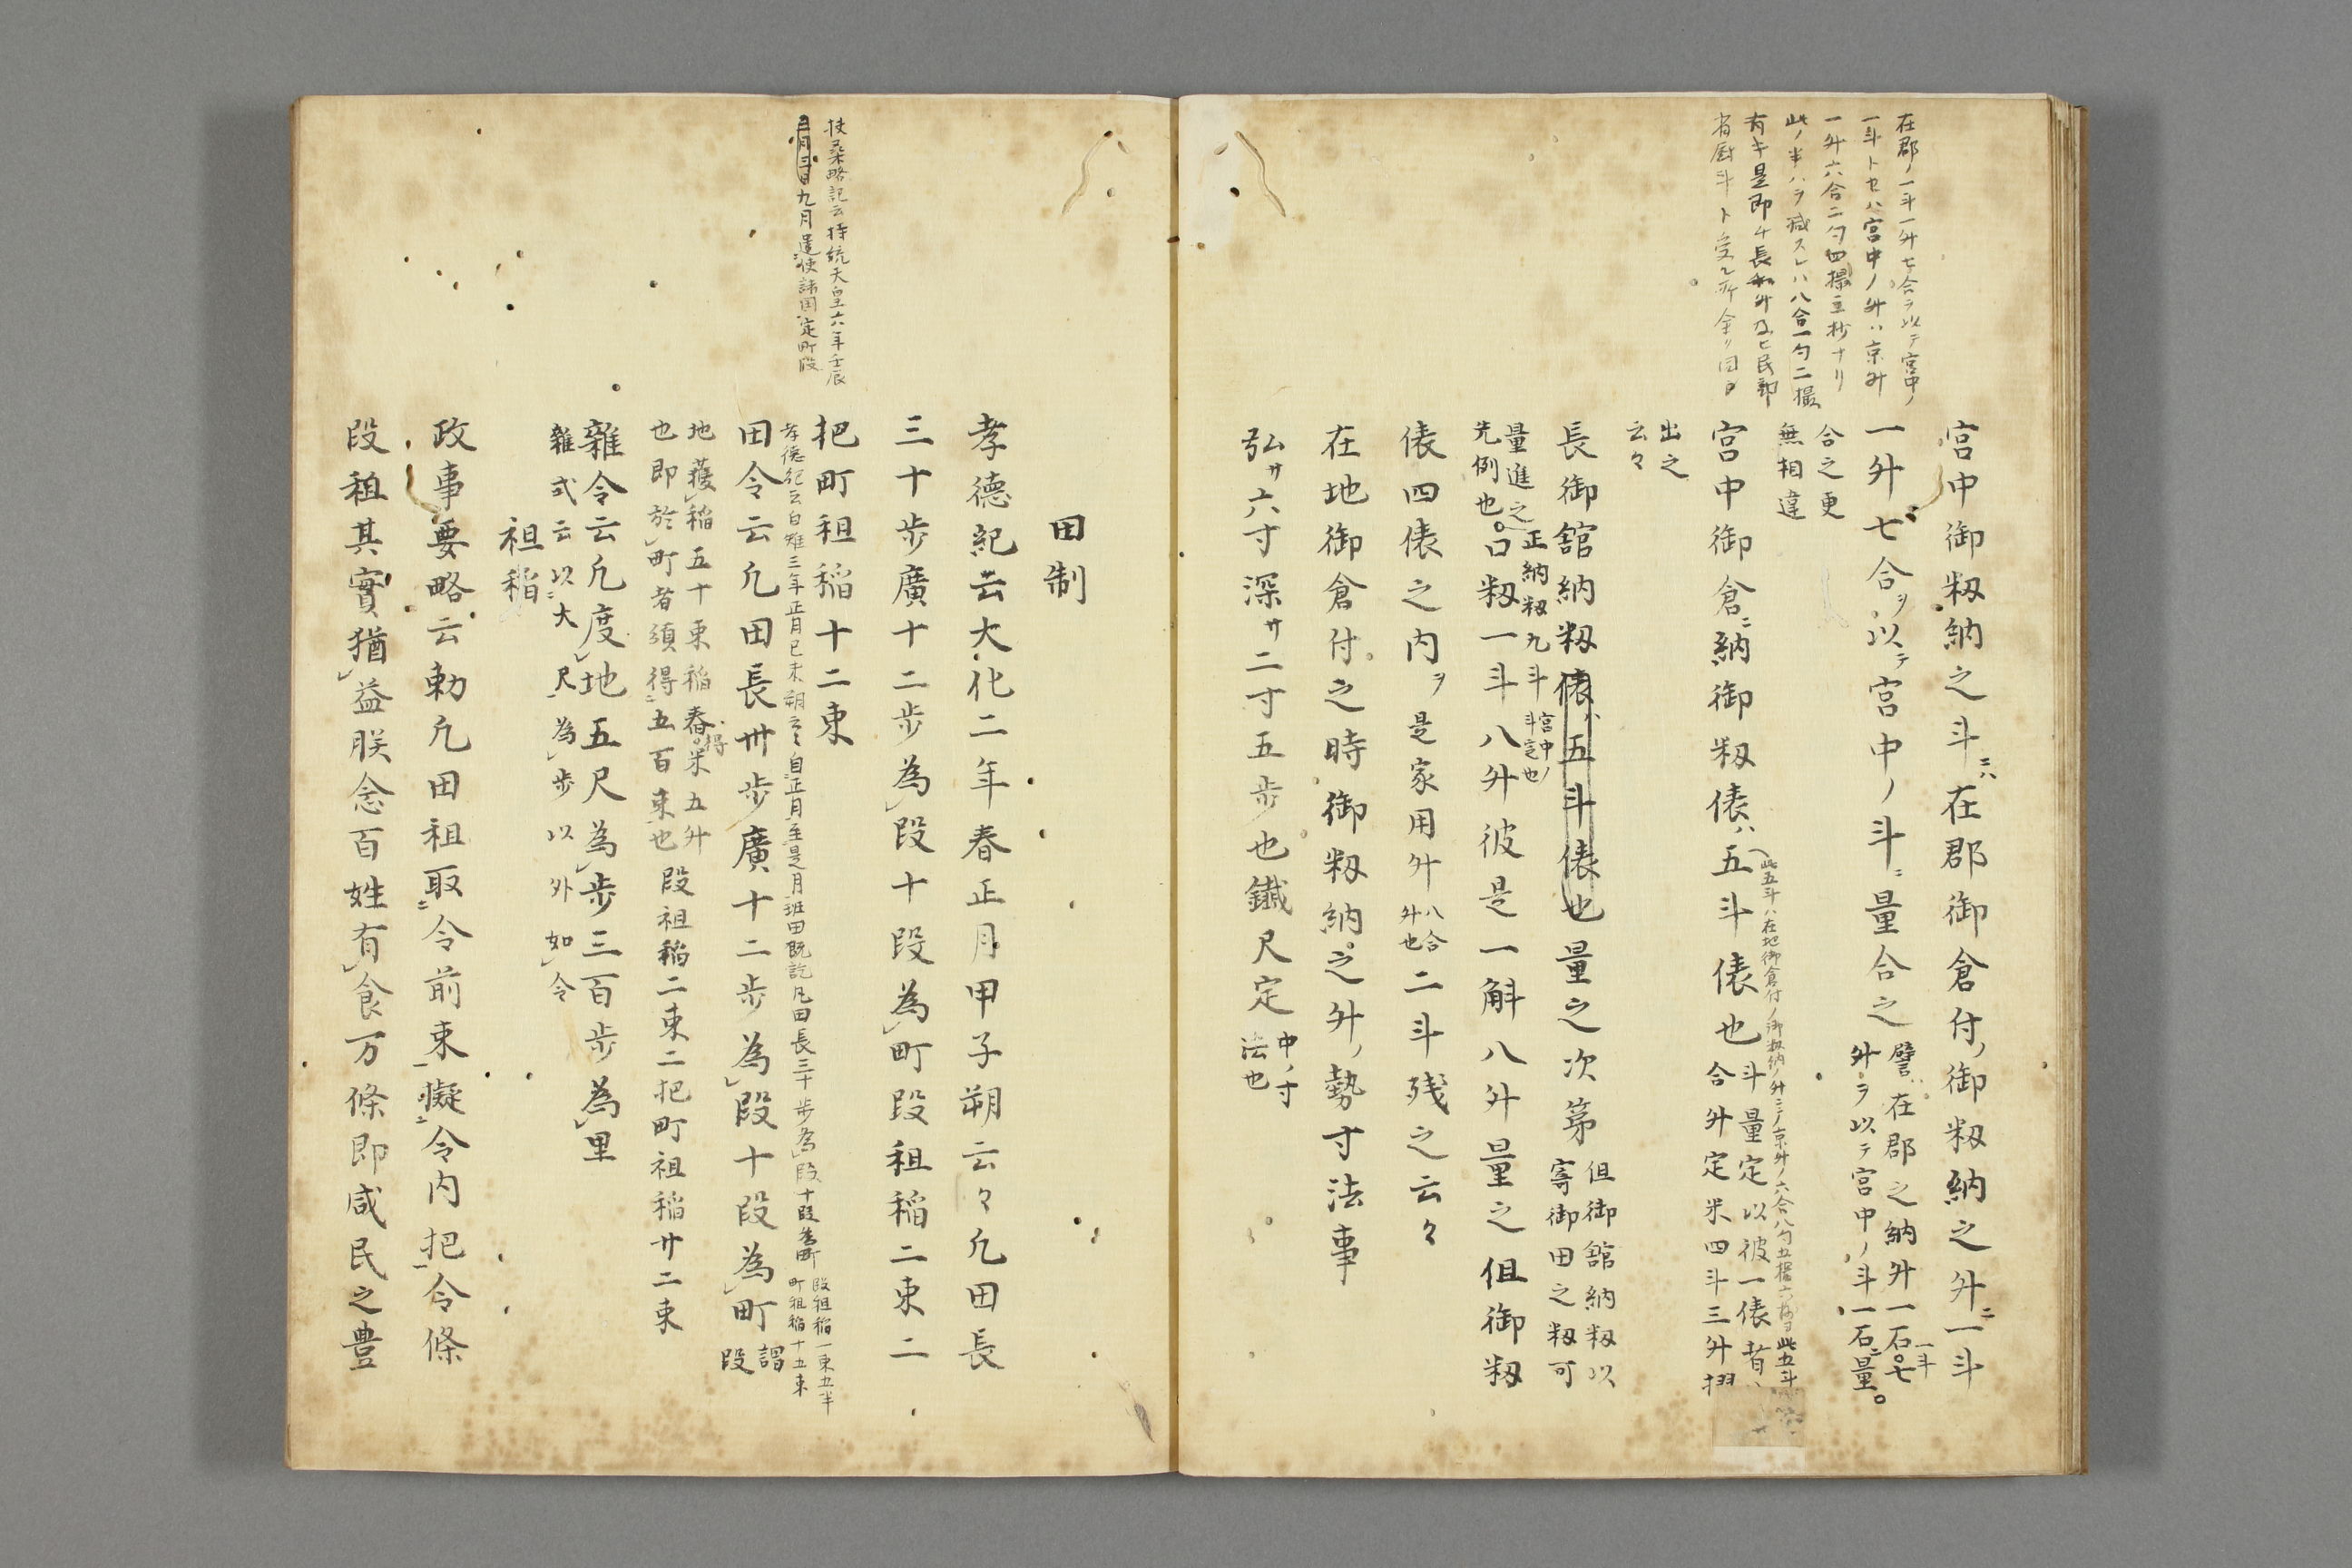 在郡ノ一斗一升七合ヲ以テ宮中ノ
一斗トセハ宮中ノ升ハ京升
一升六合二勺四撮五抄ナリ
此ノ半ハヲ減スレハ八合一勺二撮
有キ是即チ長和升及ヒ民部
省厨斗ト
宮中御籾納之斗ニハ在郡御倉付ノ御籾納之升ニ一斗
一升七合ヲ以テ宮中ノ斗ニ量合之
譬ハ在郡之納升一石一斗七
升ヲ以テ宮中ノ斗一石ニ量
合之更
無相違
宮中御倉ニ納御籾俵ハ五斗俵也
此五斗ハ在地御倉付ノ御籾納ノ升ニテ京升ノ六合八勺五撮六抄ヨ此五斗
斗量定以彼一俵者
合升定米四斗三升摺
出之
云々
長御舘納籾俵ハ五斗俵也量之次第
但御舘納籾以
寄御田之籾可
量進之
先例也
正納籾九斗
宮中ノ
斗定也
口籾一斗八升彼是一斛八升量之但御籾
俵四俵之内ヲ是家用升
八合
升也
二斗残之云々
在地御倉付之時御籾納之升ノ勢寸法事
弘サ六寸深サ二寸五歩也鐵尺定
中ノ寸
法也
扶桑略記云持統天皇六年壬辰
九月遣使諸国定町段
田制
孝德紀云大化二年春正月甲子朔云々凡田長
三十歩廣十二歩為段十段為町段租稲二束二
把町租稲十二束
孝德紀云白雉三年正月己未朔云々自正月至是月班田既訖凡田長三十歩為段十段為町
段租稲一束五半
町租稲十五束
田令云凡田長卅歩廣十二歩為段十段為町
謂
段
地獲稲五十束稲舂得米五升
也即於町者須得五百束也
段租稲二束二把町租稲廿二束
雜令云凡度地五尺為歩三百歩為里
雜式云以大尺為歩以外如令
租稲
政事要略云勅凡田租取令前束擬令内把令條
段租其實猶益朕念百姓有食万條即咸民之豊